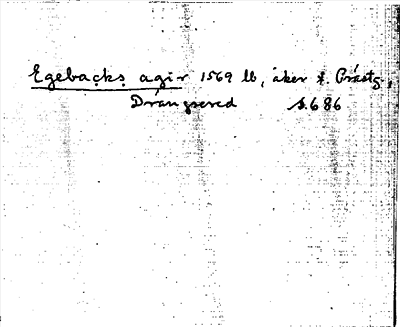 Egebacks agir 1569 lb, åker t. Prästg.,
Drängsered s. 686